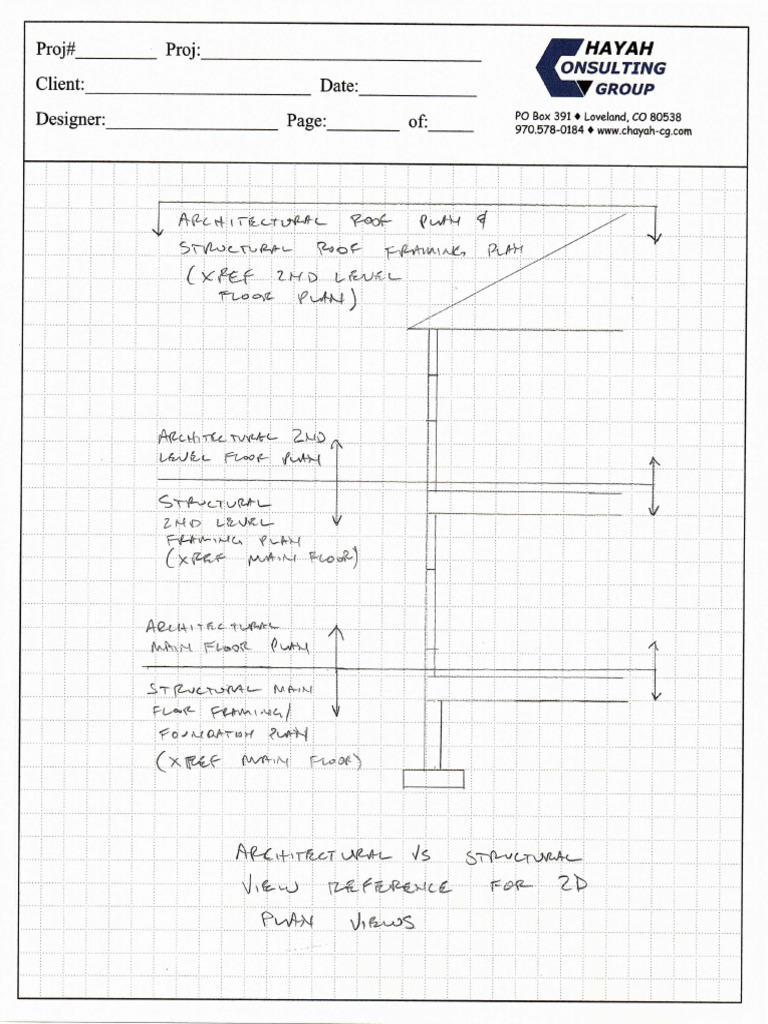 Proj#_________ Proj:______________________________
Client:_________________________ Date:_____________
Designer:___________________ Page:________ of:_____
CHAYAH
CONSULTING
GROUP
PO Box 391 ♦ Loveland, CO 80538
970.578-0184 ♦ www.chayah-cg.com
ARCHITECTURAL ROOF PLAN &
STRUCTURAL ROOF FRAMING PLAN
(XREF 2ND LEVEL
FLOOR PLAN)
ARCHITECTURAL 2ND
LEVEL FLOOR PLAN
STRUCTURAL
2ND LEVEL
FRAMING PLAN
(XREF MAIN FLOOR)
ARCHITECTURAL
MAIN FLOOR PLAN
STRUCTURAL MAIN
FLOOR FRAMING/
FOUNDATION PLAN
(XREF MAIN FLOOR)
ARCHITECTURAL VS STRUCTURAL
VIEW REFERENCE FOR 2D
PLAN VIEWS